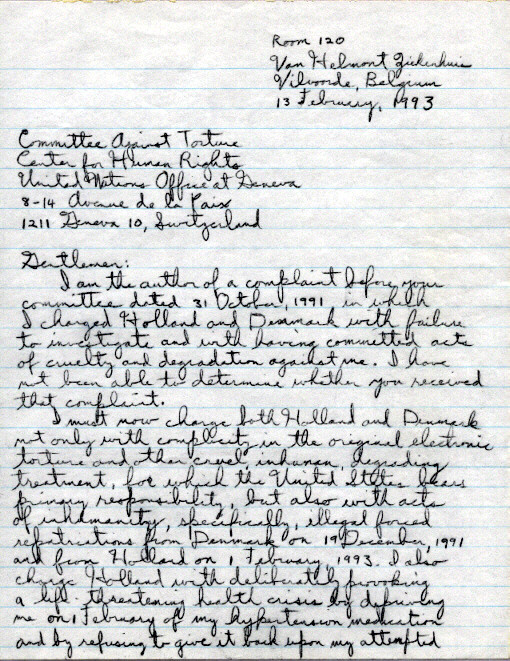 Room 120
Van Helmont Ziekenhuis
Vilvoorde, Belgium
13 February, 1993
Committee Against Torture
Center for Human Rights
United Nations Office at Geneva
8-14 Avenue de la Paix
1211 Geneva 10, Switzerland
Gentlemen:
I am the author of a complaint before your
committee dated 31 October, 1991 in which
I charged Holland and Denmark with failure
to investigate and with having committed acts
of cruelty and degradation against me. I have
not been able to determine whether you received
that complaint.
I must now charge both Holland and Denmark
not only with complicity in the original electronic
torture and other cruel, inhuman, degrading
treatment, for which the United States bears
primary responsibility, but also with acts
of inhumanity, specifically, illegal forced
repatriations from Denmark on 19 December, 1991
and from Holland on 1 February 1993. I also
charge Holland with deliberately provoking
a life-threatening health crisis by depriving
me on 1 February of my hypertension medication
and by refusing to give it back upon my attempted